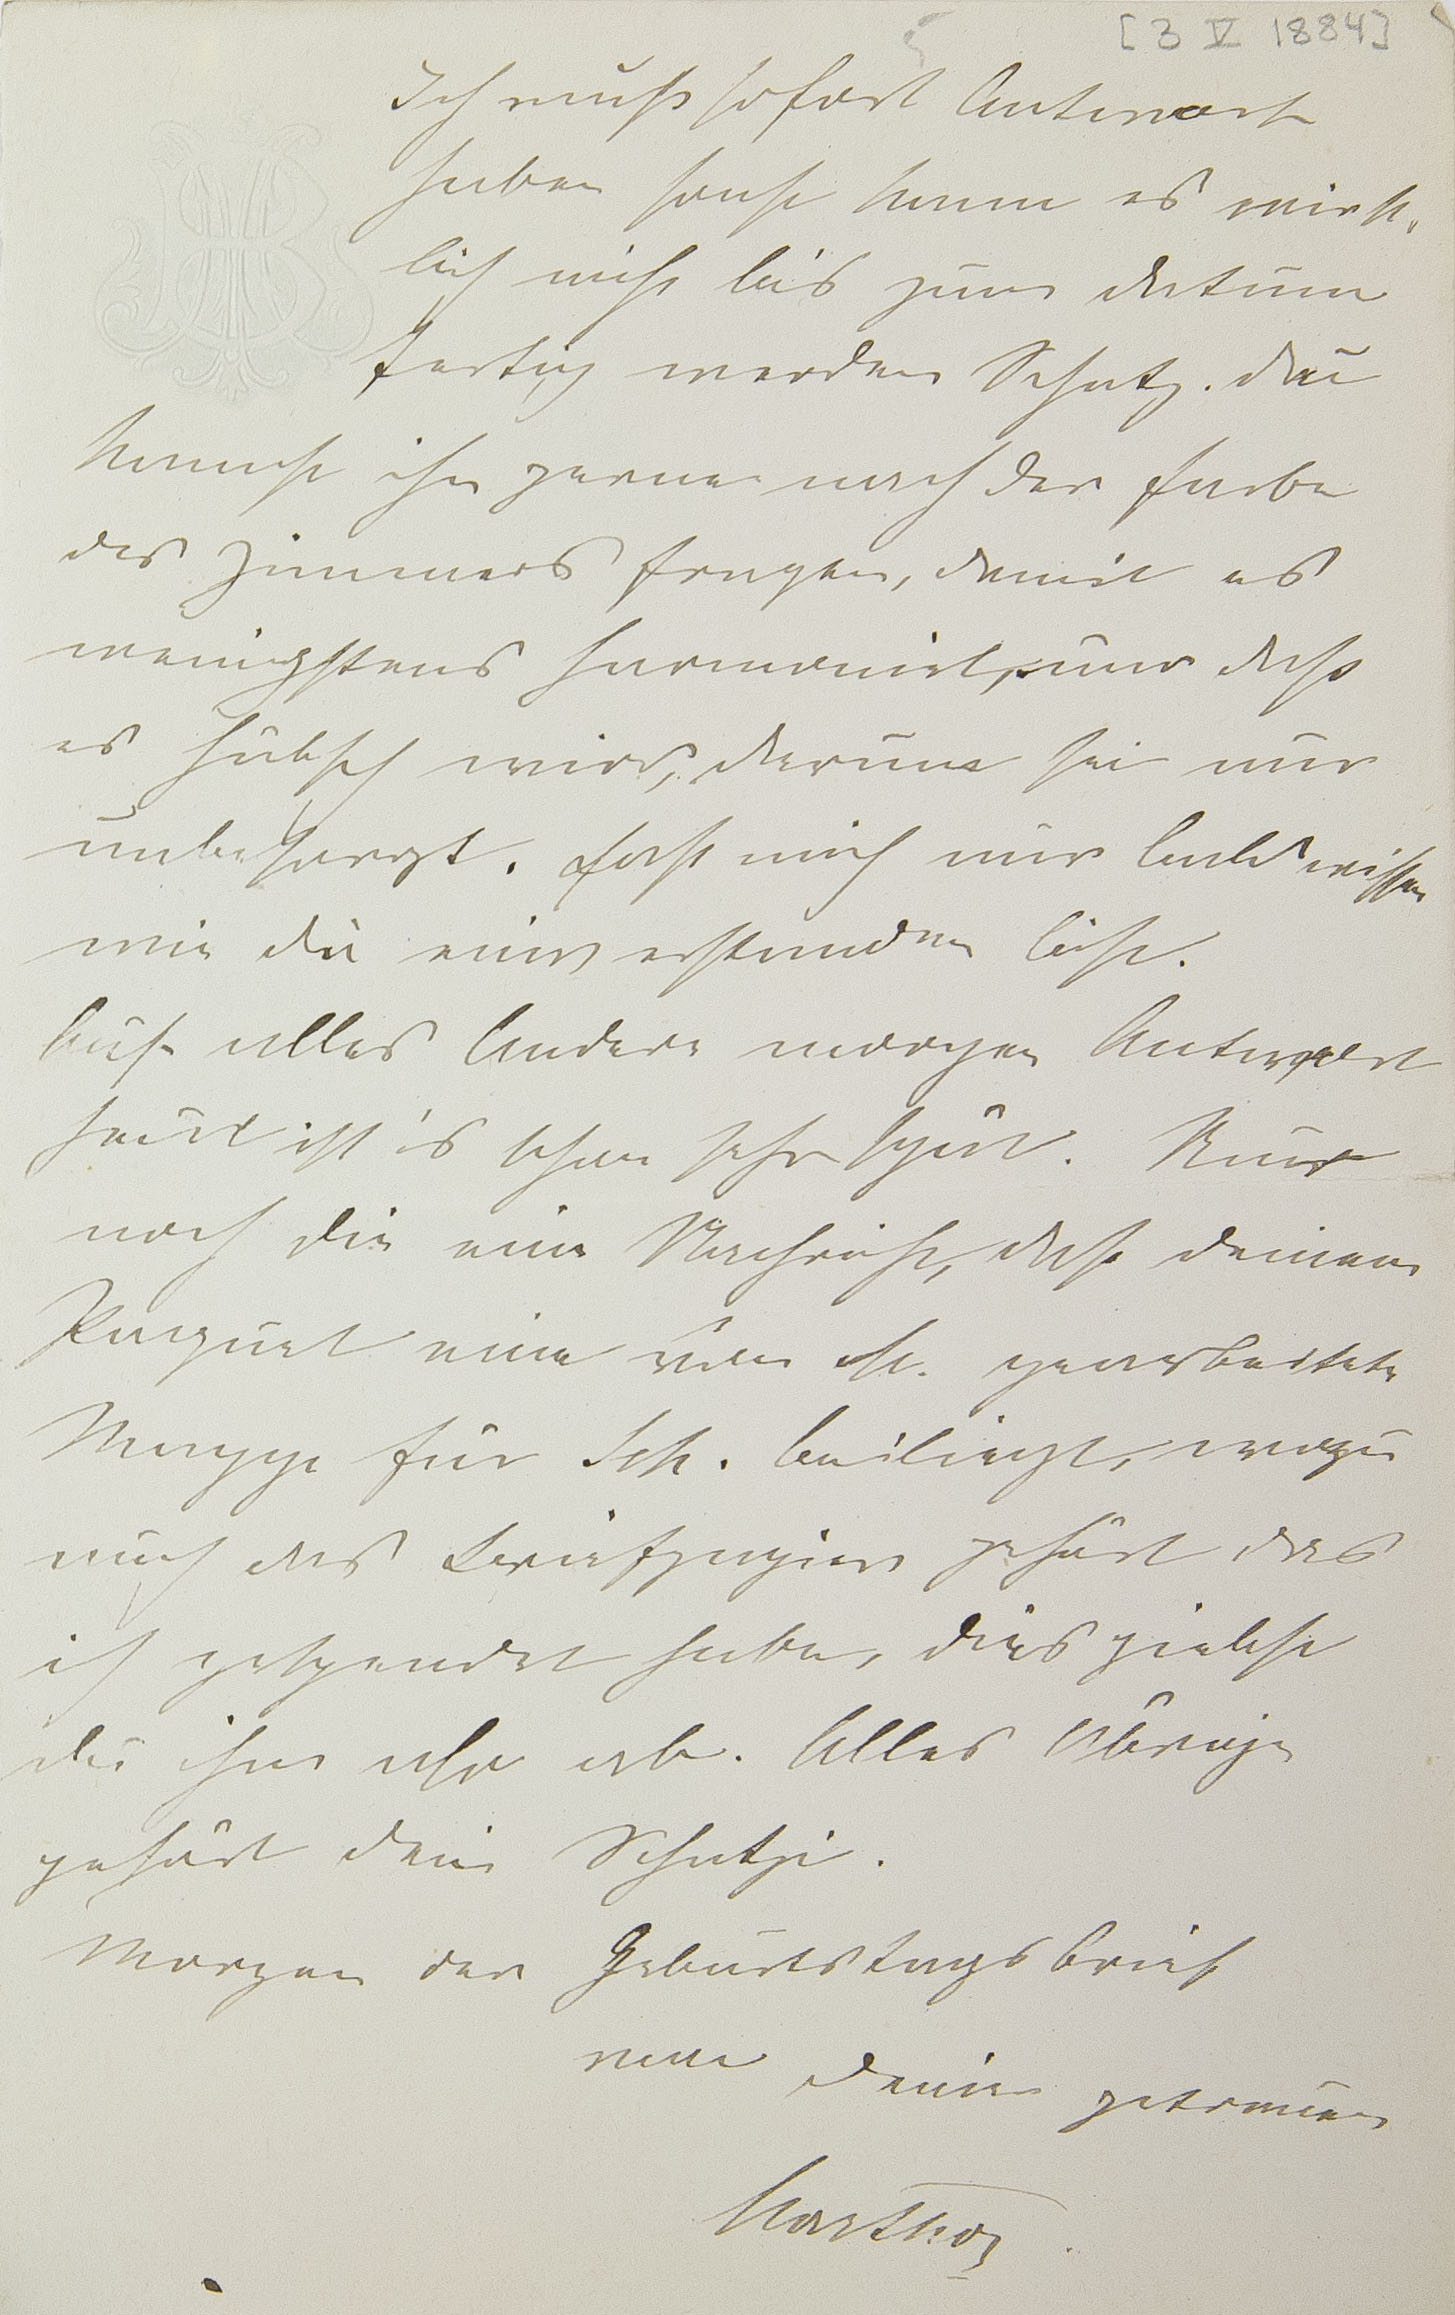 [3 V 1884]
Ich muß sofort Antwort
haben sonst kann es wirk-
lich nicht bis zum datum
fertig werden Schatz. du
kannst ihn gerne nach der farbe
des Zimmers fragen, damit es
wenigstens harmonirt, nur daß
es hübsch wird, darum sei nur
unbesorgt. Laß mich nur bald wissen
wie du einverstanden bist.
Auf alles Andere morgen Antwort
heut ist's schon sehr spät. Nur
noch die eine Nachricht, daß deinem
Paquet eine von gearbeitete
Mappe für Sch. beiliegt, wozu
auch das Briefpapier gehört das
ich gespendet habe, dies giebst
du ihm also ab. Alles Übrige
gehört dein Schatzi.
Morgen der Geburtstagsbrief
von deiner getreuen
Martha